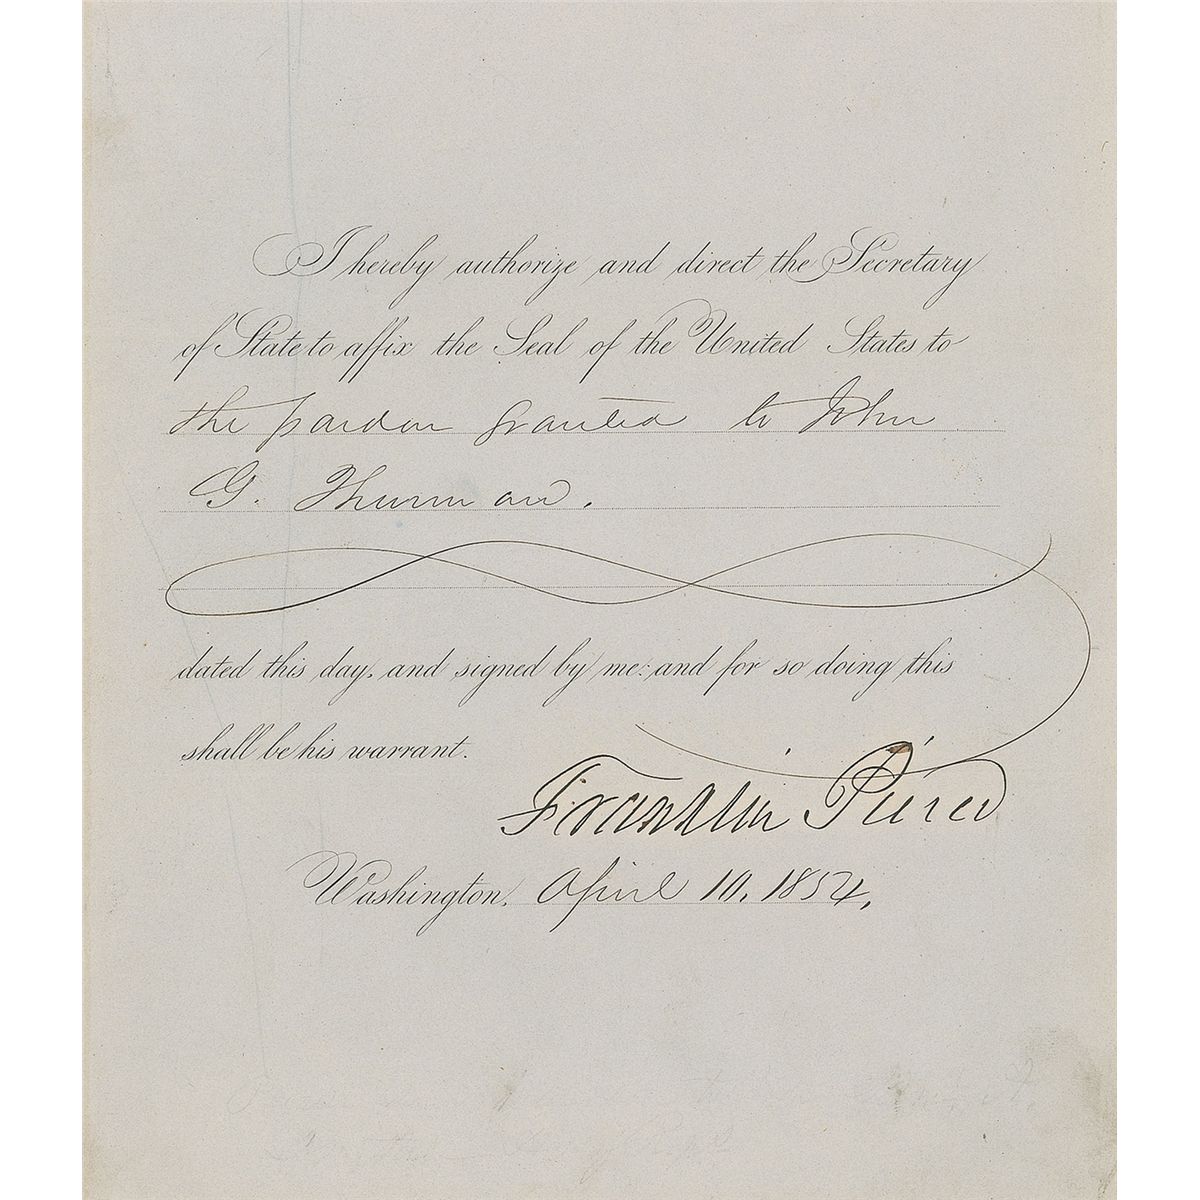 I hereby authorize and direct the Secretary
of State to affix the Seal of the United States to
the pardon granted to John
G. Thurman.
dated this day, and signed by me: and for so doing this
shall be his warrant.
Franklin Pierce
Washington, April 10, 1854.